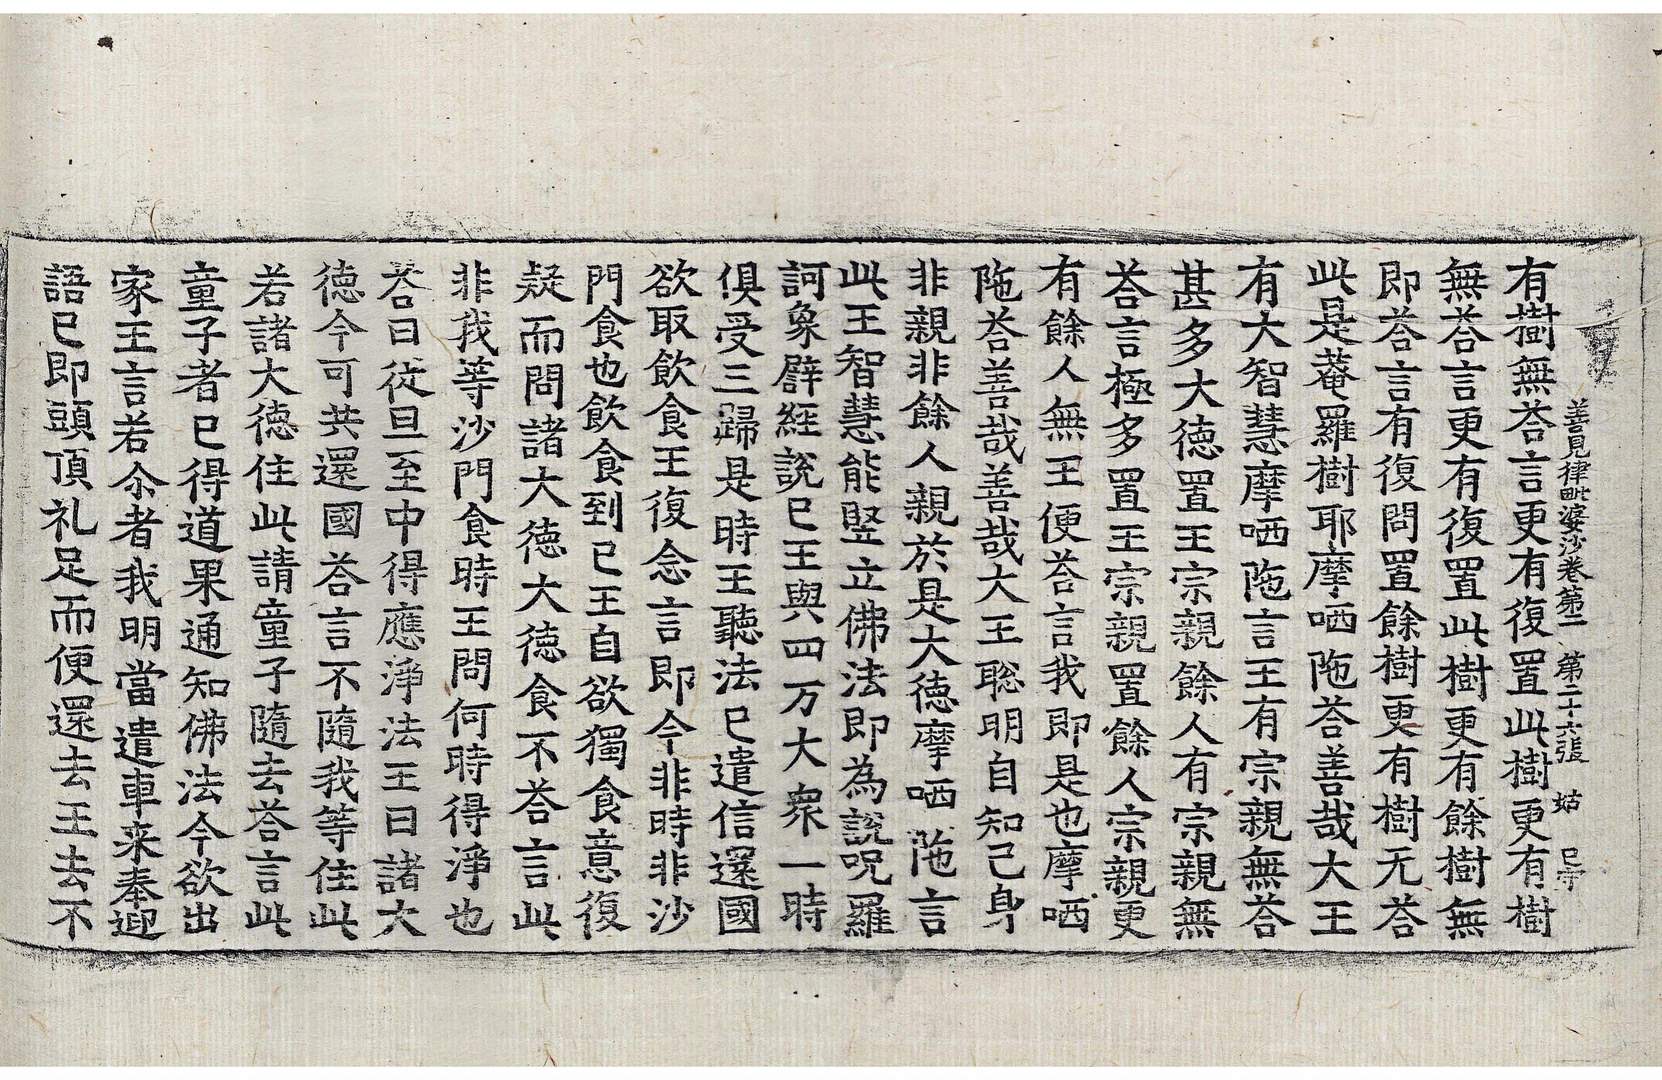 善見律毗婆沙卷第二 第二十六張 姑
有樹無荅言更有復置此樹更有樹
無荅言更有復置此樹更有餘樹無
即荅言有復問置餘樹更有樹无荅
此是菴羅樹耶摩哂陁荅善哉大王
有大智慧摩哂陁言王有宗親無荅
甚多大德置王宗親餘人有宗親無
荅言極多置王宗親置餘人宗親更
有餘人無王便荅言我即是也摩哂
陁荅善哉善哉大王聡明自知己身
非親非餘人親於是大德摩哂陁言
此王智慧能竪立佛法即為說呪羅
訶象譬經說已王與四万大衆一時
俱受三歸是時王聽法已遣信還國
欲取飲食王復念言即今非時非沙
門食也飲食到已王自欲獨食意復
疑而問諸大德大德食不荅言此
非我等沙門食時王問何時得淨也
荅曰從旦至中得應淨法王曰諸大
德今可共還國荅言不隨我等住此
若諸大德住此請童子隨去荅言此
童子者已得道果通知佛法今欲出
家王言若尒者我明當遣車来奉迎
語已即頭頂礼足而便還去王去不